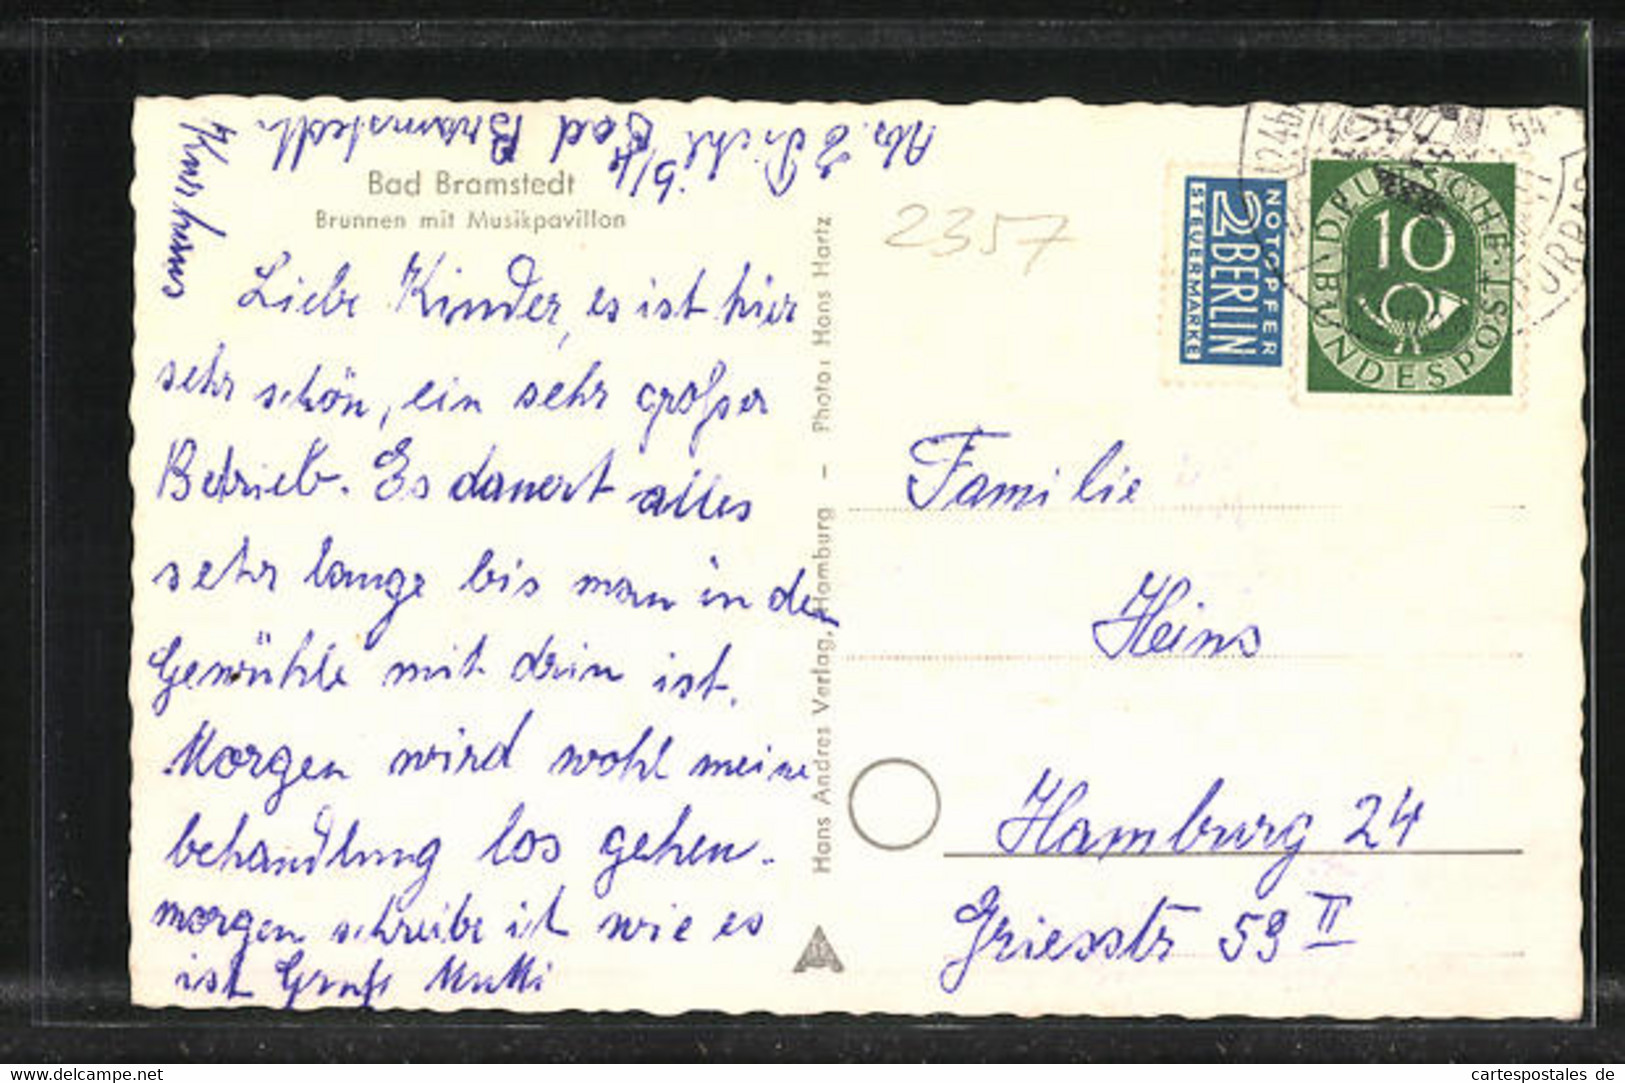 Abs. Bad Bramstedt
Kurhaus
Bad Bramstedt
Brunnen mit Musikpavillon
Liebe Kinder, es ist hier
sehr schön, ein sehr großer
Betrieb. Es dauert alles
sehr lange bis man in den
Gewühle mit drin ist.
Morgen wird wohl meine
behandlung los gehen.
morgen schreibe ich wie es
ist Gruß Mutti
Hans Andres Verlag, Hamburg – Photo: Hans Hartz
2357
NOTOPFER
2 BERLIN
STEUERMARKE
10
DEUTSCHE
BUNDESPOST
54
(24b)
Familie
Heins
Hamburg 24
Griesstr 59 II
www.cartespostales.de
cartespostales de